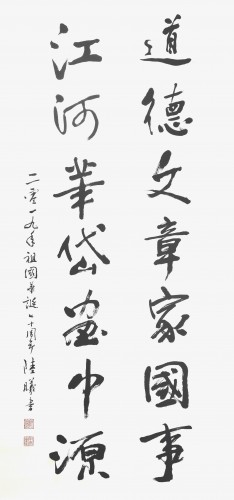 道德文章家國事
江河華岱畫中源
二零一九年祖國華誕七十周年陸曦書